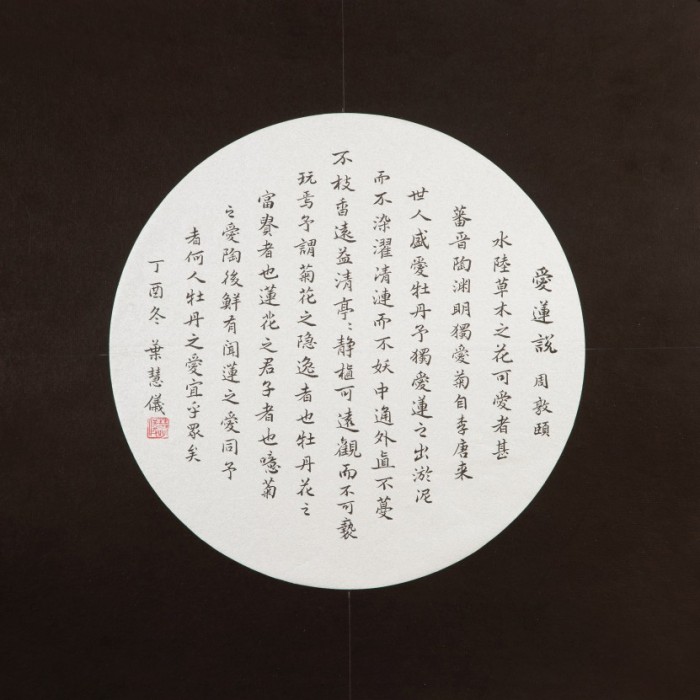 愛蓮說 周敦頤
水陸草木之花可愛者甚
蕃晋陶渊明獨愛菊自李唐来
世人盛愛牡丹予獨愛蓮之出淤泥
而不染濯清漣而不妖中通外直不蔓
不枝香遠益清亭〻静植可遠觀而不可褻
玩焉予謂菊花之隐逸者也牡丹花之
富貴者也蓮花之君子者也噫菊
之愛陶後鮮有聞蓮之愛同予
者何人牡丹之愛宜乎眾矣
丁酉冬 葉慧儀